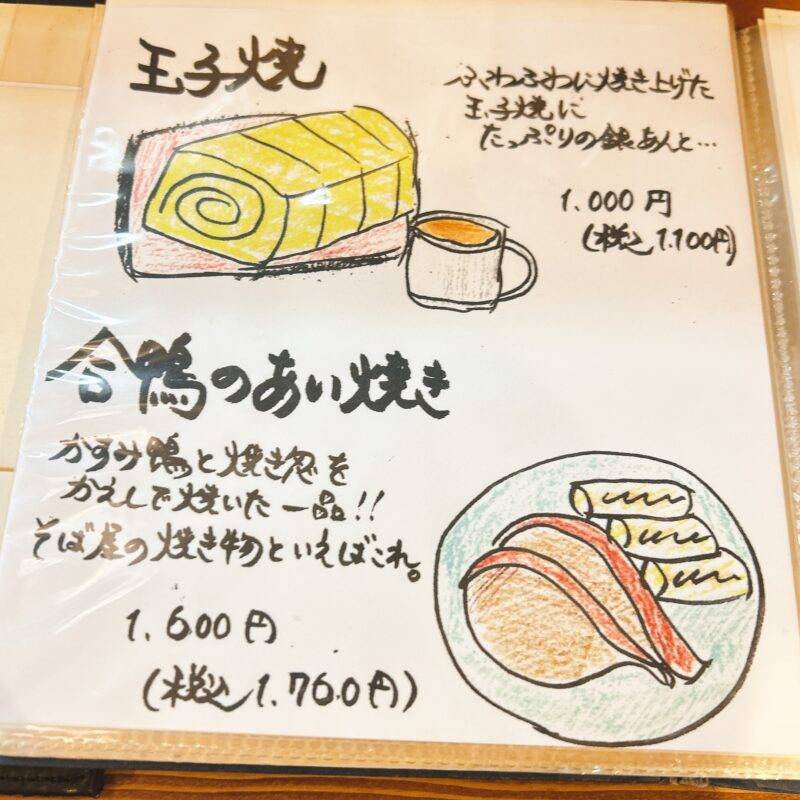 玉子焼
ふわふわに焼き上げた
玉子焼に
たっぷりの銀あんと…
1.000円
(税込1.100円)
合鴨のあい焼き
かすみ鴨と焼き葱を
かえしで焼いた一品!!
そば屋の焼き物といえばこれ。
1.600円
(税込1.760円)